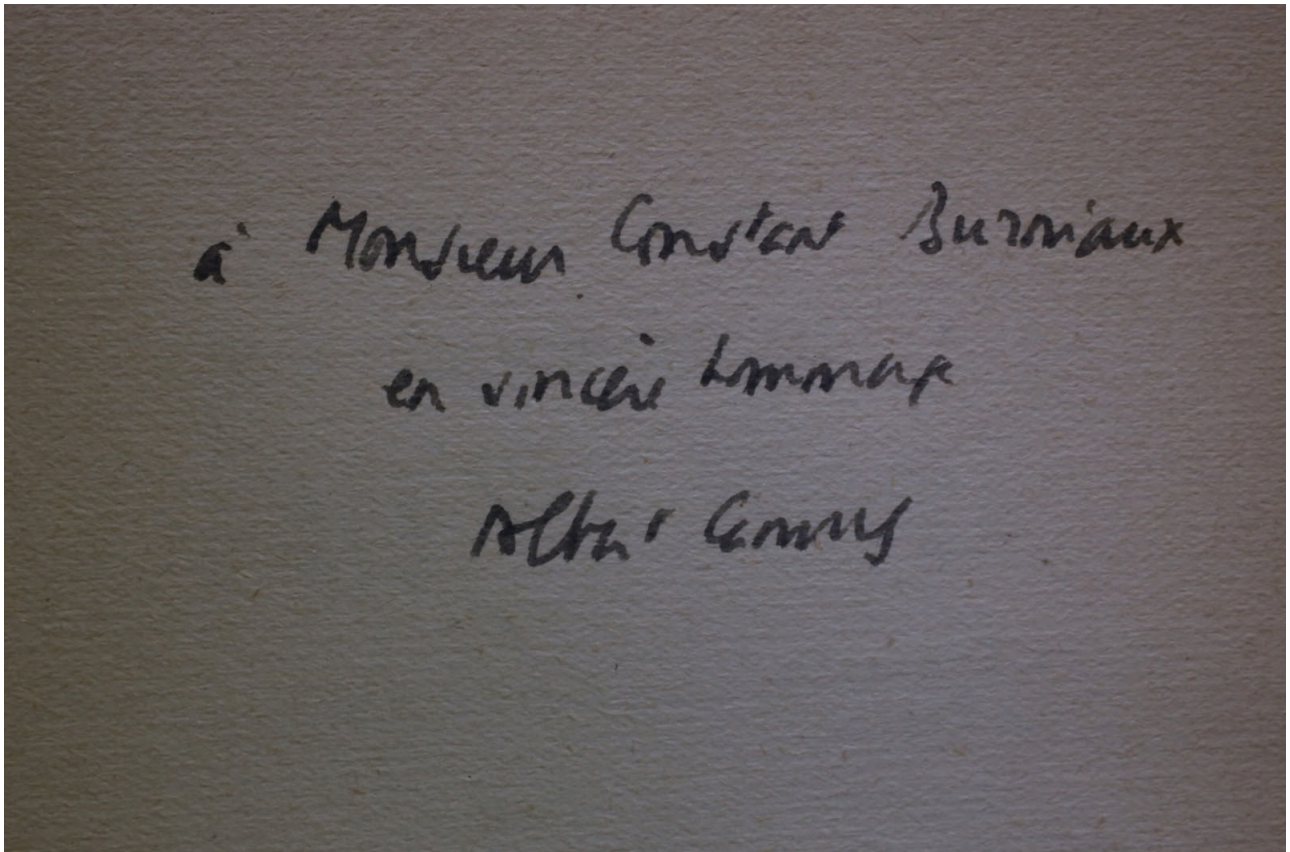 à Monsieur Constant Burniaux
en sincère hommage
Albert Camus